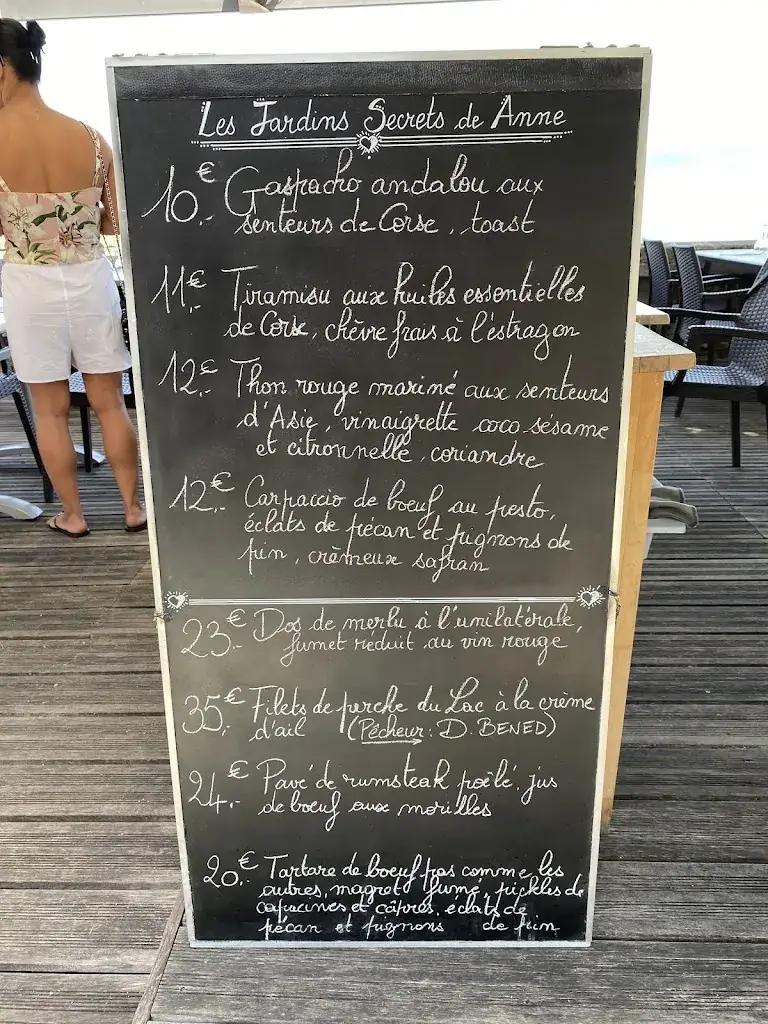 Les Jardins Secrets de Anne
10,-€ Gaspacho andalou aux
senteurs de Corse, toast
11,-€ Tiramisu aux huiles essentielles
de Corse, chèvre frais à l'estragon
12,-€ Thon rouge mariné aux senteurs
d'Asie, vinaigrette coco sésame
et citronnelle, coriandre
12,-€ Carpaccio de boeuf au pesto,
éclats de pécan et pignons de
pin, crèmeux safran
23,-€ Dos de merlu à l'unilatérale,
fumet réduit au vin rouge
35,-€ Filets de perche du Lac à la crème
d'ail (Pêcheur: D. BENED)
24,-€ Pavé de rumsteak poêlé, jus
de boeuf aux morilles
20,-€ Tartare de boeuf pas comme les
autres, magret fumé, pickles de
capucines et câpres, éclats de
pécan et pignons de pin